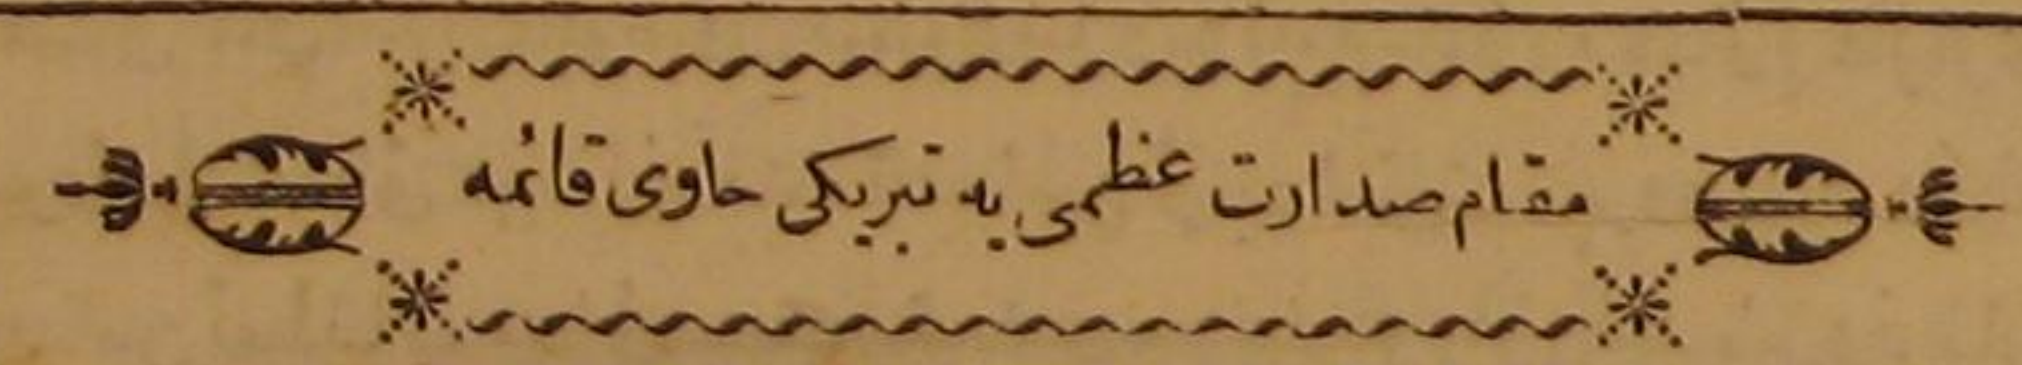 مقام صدارت عظمی یه تبریکی حاوی قائمه